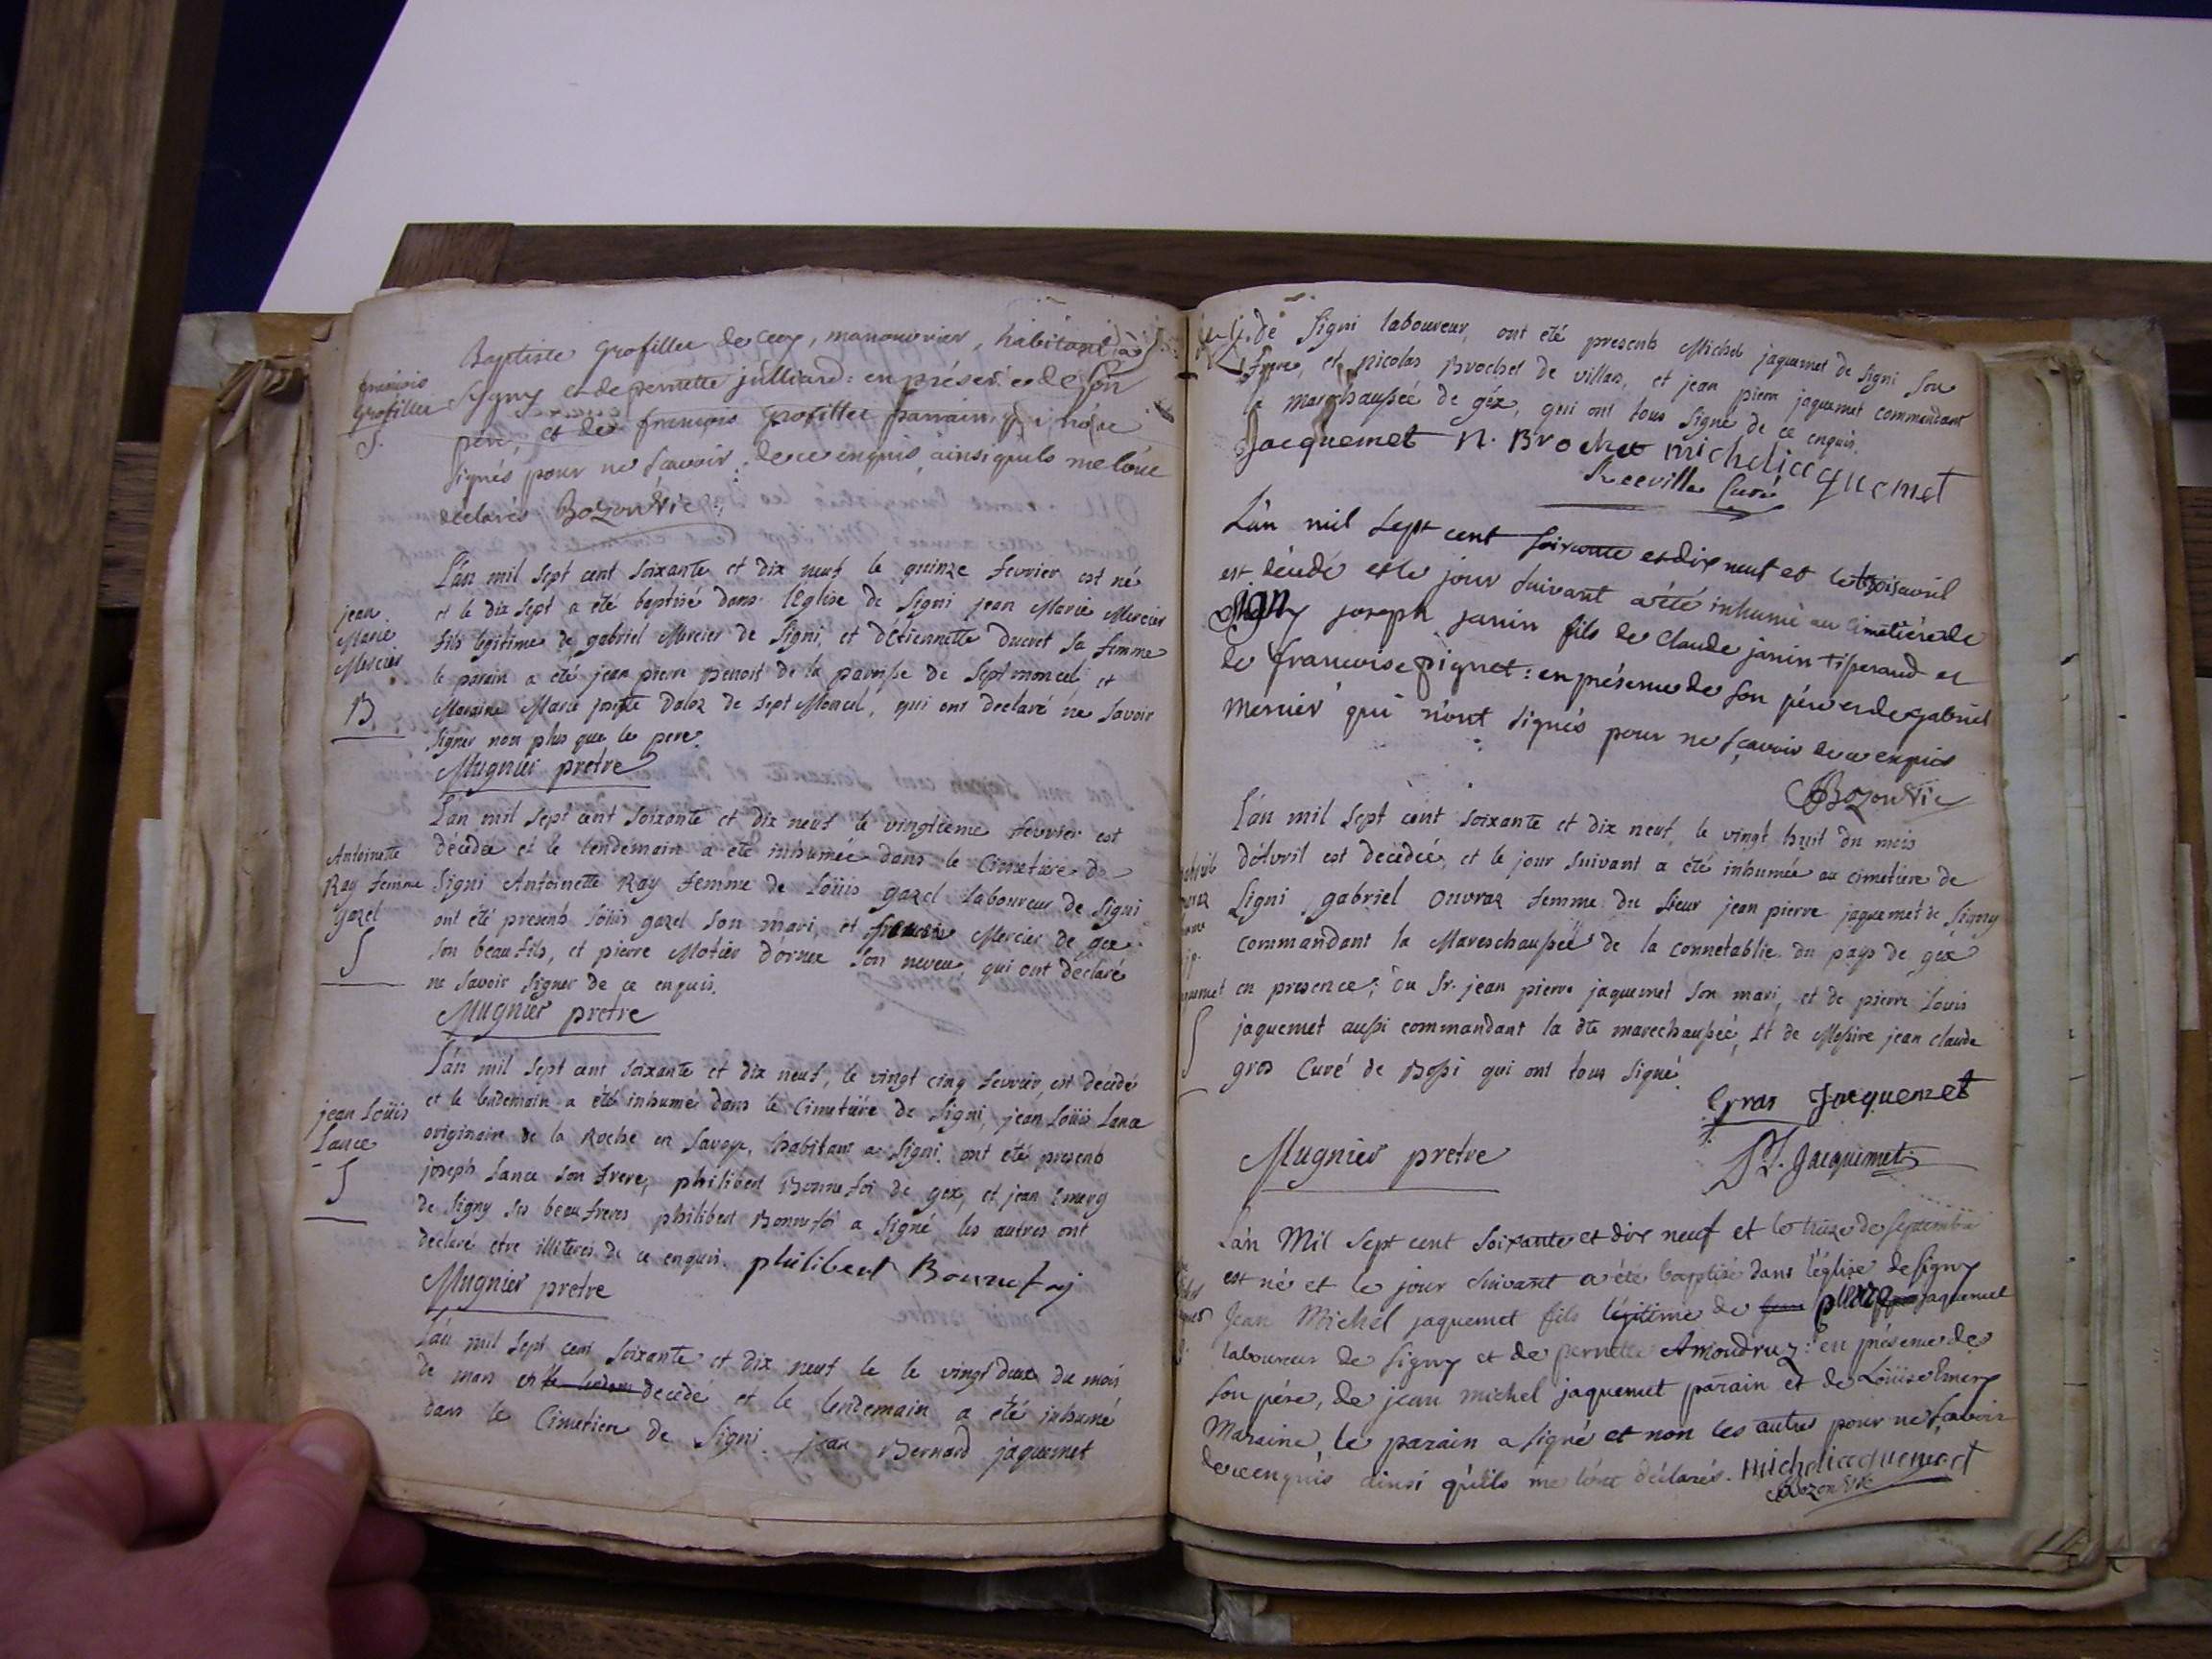 Baptiste Grofillier de Cessy, manouvrier, habitant à
françois
Grofillier
S.
Signy et de pernette julliard : en présence de son
pere, et de françois Grofillier parrain, qui n'ont
signés pour ne sçavoir. de ce enquis ainsi qu'ils me l'ont
déclarés Bozon Vic:
L'an mil sept cent soixante et dix neuf le quinze fevrier est né
et le dix sept a été baptisé dans l'Eglise de Signi jean Marie Mercier
jean
Marie
Mercier
B
fils legitime de gabriel Mercier de Signi, et d'étiennette Ducret sa femme
le parain a été jean pierre Benoit de la paroisse de Septmoncel et
Maraine Marie Daloz de Sept Moncel, qui ont declaré ne savoir
signer non plus que le pere.
Mugnier pretre
L'an mil sept cent soixante et dix neuf le vingtieme fevrier est
décédée et le lendemain a été inhumée dans le Cimetiere de
Antoinette
Ray femme
gazel
S
Signi Antoinette Ray femme de Loüis gazel laboureur de Signi
ont été presents Loüis gazel son mari, et Mercier de gex
son beau fils, et pierre Motier d'ornex son neveu, qui ont déclaré
ne savoir signer de ce enquis.
Mugnier pretre
L'an mil sept cent soixante et dix neuf, le vingt cinq fevrier, est décédé
et le lendemain a été inhumé dans le Cimetiére de Signi, jean Loüis Lance
jean Loüis
Lance
S
originaire de la Roche en Savoye, habitant a Signi. ont été presents
joseph Lance son frere, philibert Bonnefoi de gex, et jean Emery
de Signy ses beau freres philibert Bonnefoi a signé les autres ont
declaré etre illiteres de ce enquis. philibert Bonnefoy
Mugnier pretre
L'an mil sept cent soixante et dix neuf le le vingt deux du mois
de mars est le lendem decédé et le lendemain a été inhumé
dans le Cimetiere de Signi. jean Bernard jaquemet
de Signi laboureur, ont été presents Michel jaquemet de Signi son
frere, et nicolas Brochet de villars, et jean pierre jaquemet commandant
la marechaussée de gex, qui ont tous signé de ce enquis.
Jacquemet N. Brochet michel jacquemet
Curé
L'an mil sept cent soixante et dix neuf et le trois avril
est décédé et le jour suivant a été inhumé au cimetière de
Signy joseph janin fils de Claude janin tisserand et
de francoise pignet : en présence de son pére et de gabriel
Mercier qui n'ont signés pour ne sçavoir de ce enquis
Bozon Vic
L'an mil sept cent soixante et dix neuf, le vingt huit du mois
d'Avril est decédée, et le jour suivant a été inhumée au cimetiere de
Signi gabriel onvraz femme du Sieur jean pierre jaquemet de Signy
commandant la Mareschaussée de la connetablie du pays de gex
S
en presence; du Sr. jean pierre jaquemet son mari, et de pierre Louis
jaquemet aussi commandant la dte marechaussée, et de Messire jean claude
gros Curé de Bossi qui ont tous signé.
Jacquemet
Mugnier pretre
Jacquemet
L'an Mil Sept cent Soixante et dix neuf et le treize de septembre
est né et le jour suivant a été baptisé dans l'église de Signy
Jean Michel jaquemet fils légitime de jean pierre jaquemet
laboureur de Signy et de pernette Amoudruz : en présence de
son pére, de jean michel jaquemet parain et de Loüise Emery
Maraine, le parain a signé et non les autres pour ne sçavoir
de ce enquis ainsi qu'ils me l'ont déclarés. michel jacquemet
Bozon Vic